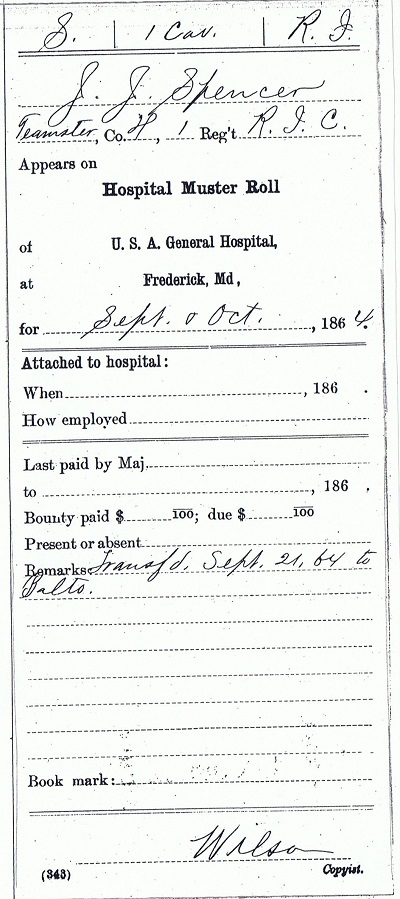 S. | 1 Cav. | R. I.
J. J. Spencer
Teamster, Co. H, 1 Reg't R. I. C.
Appears on
Hospital Muster Roll
of U. S. A. General Hospital,
at Frederick, Md,
for Sept. & Oct., 1864.
Attached to hospital:
When, 186 .
How employed
Last paid by Maj.
to , 186 .
Bounty paid $ 100; due $ 100
Present or absent
Remarks: Transf'd. Sept. 21, 64 to
Balto.
Book mark:
Wilson
(343) Copyist.